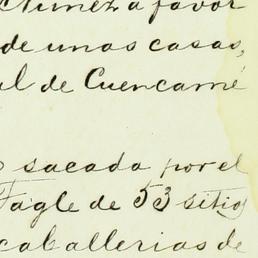 Nuñez a favor
de unas casas,
al de Cuencamé
sacada por el
Tagle de 53 sitios
caballerias de